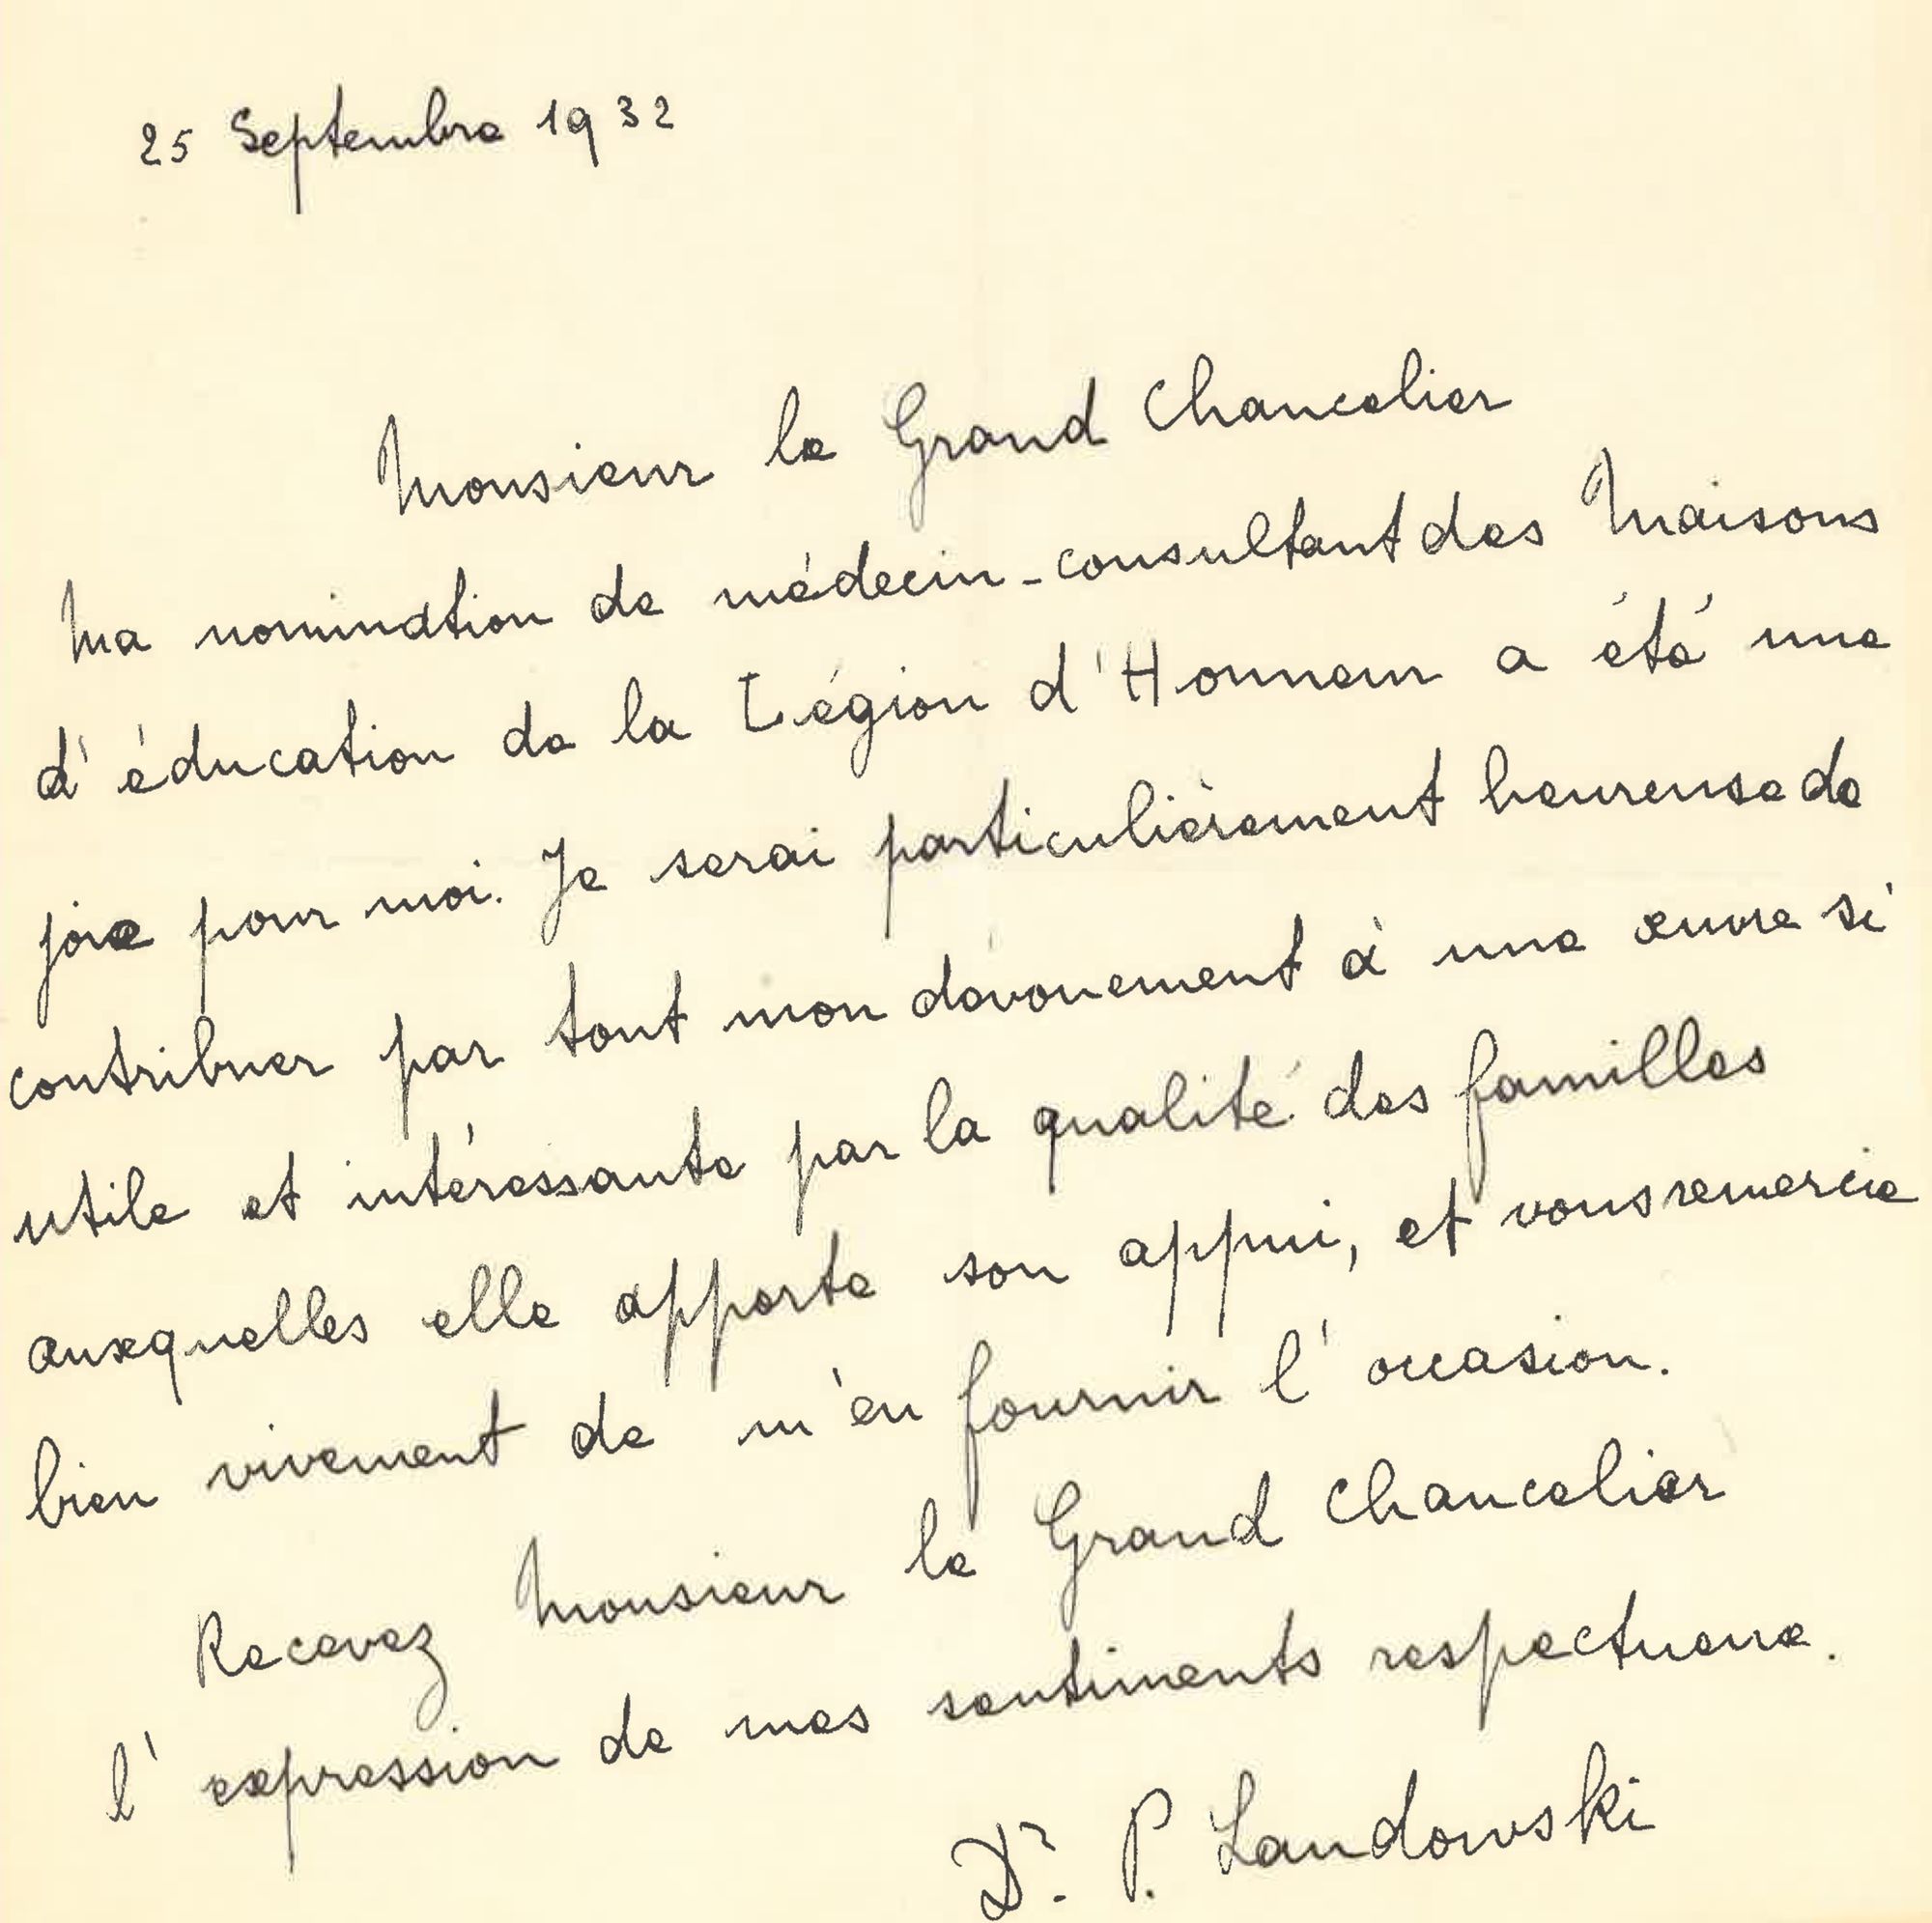 25 Septembre 1932
Monsieur le Grand Chancelier
Ma nomination de médecin-consultant des Maisons
d'éducation de la Légion d'Honneur a été une
joie pour moi. Je serai particulièrement heureuse de
contribuer par tout mon dévouement à une œuvre si
utile et intéressante par la qualité des familles
auxquelles elle apporte son appui, et vous remercie
bien vivement de m'en fournir l'occasion.
Recevez Monsieur le Grand Chancelier
l'expression de mes sentiments respectueux.
Dr. P. Landowski